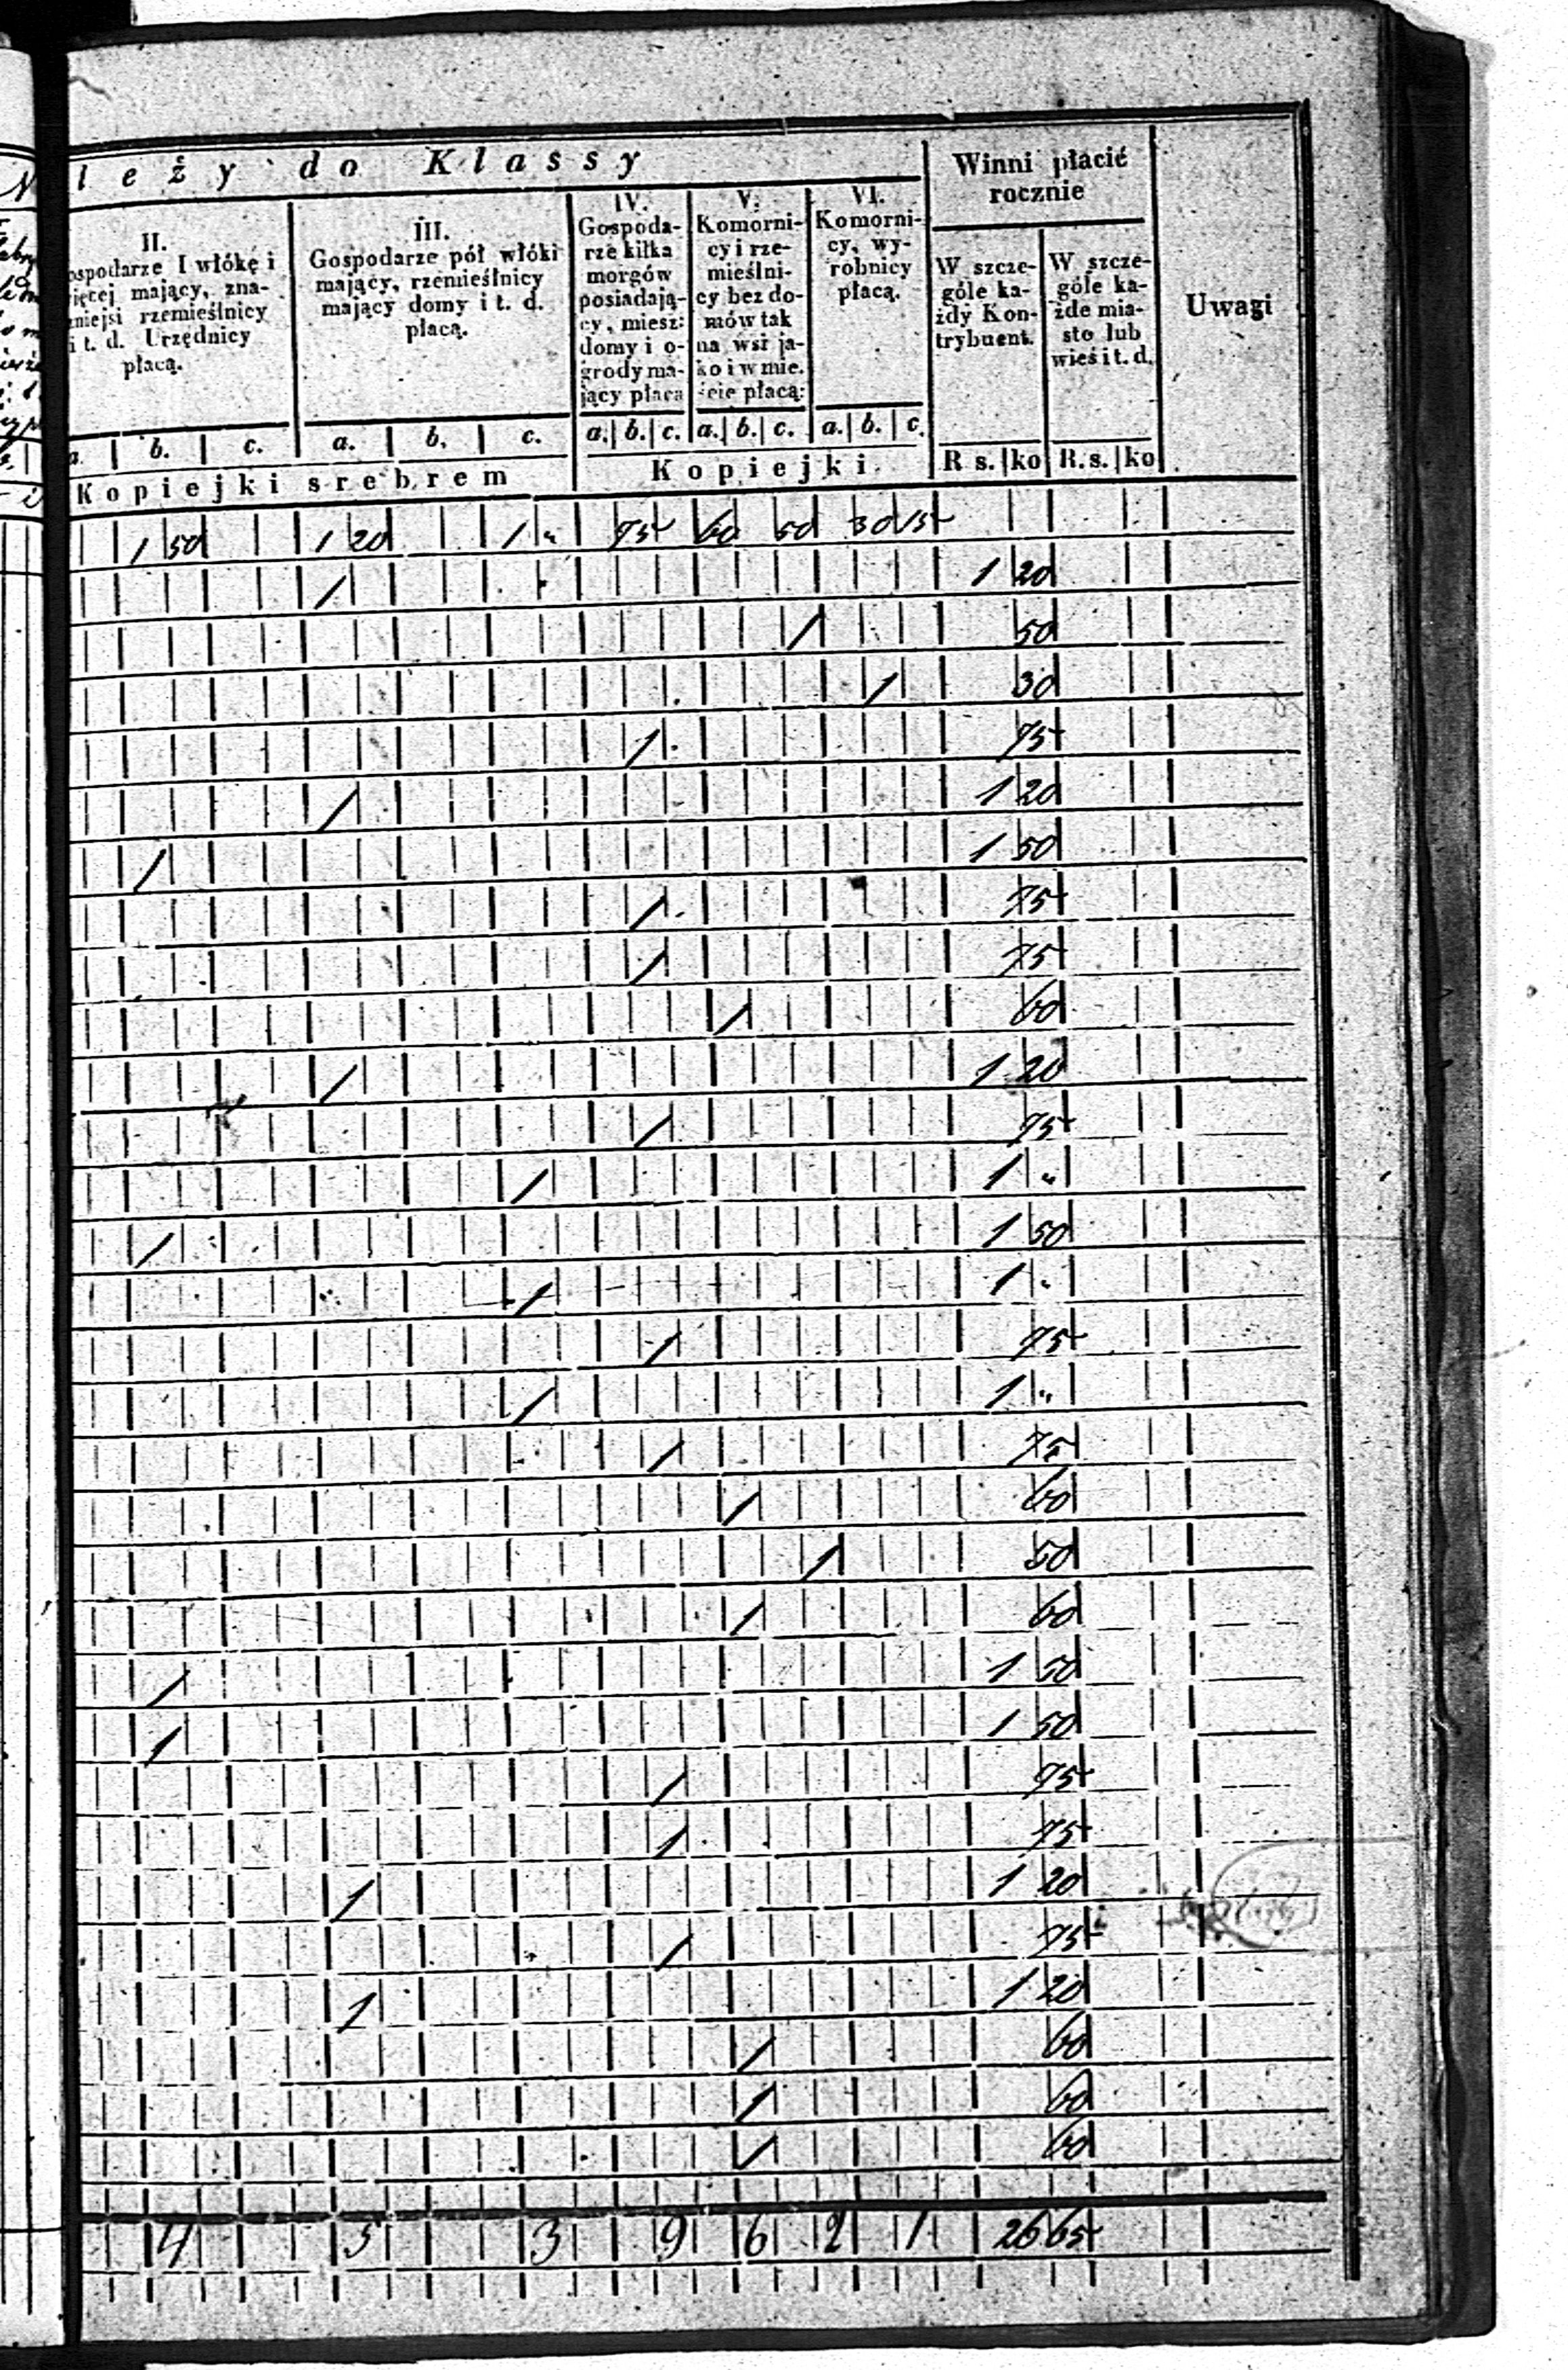 leży do Klassy
Winni płacić
rocznie
Uwagi
II.
ospodarze I włókę i
ięcej mający, zna-
zniejsi rzemieślnicy
i t. d. Urzędnicy
płacą.
III.
Gospodarze pół włóki
mający, rzemieślnicy
mający domy i t. d.
płacą.
IV.
Gospoda-
rze kilka
morgów
posiadają-
cy, miesz:
domy i o-
grody ma-
jący płacą
V.
Komorni-
cy i rze-
mieślni-
cy bez do-
mów tak
na wsi ja-
ko i w mie.
ście płacą:
VI.
Komorni-
cy, wy-
robnicy
płacą.
W szcze-
góle ka-
żdy Kon-
trybuent.
W szcze-
góle ka-
żde mia-
sto lub
wieś i t. d.
a. b. c. a. b. c. a. b. c. a. b. c. a. b. c.
Kopiejki srebrem Kopiejki. R s. ko R. s. ko
1 50 1 20 1 " 75 60 50 30 15
1 1 20
1 50
1 30
1 75
1 1 20
1 1 50
1 75
1 75
1 60
1 1 20
1 75
1 1 "
1 1 50
1 1 "
1 75
1 1 "
1 75
1 60
1 50
1 60
1 1 50
1 1 50
1 75
1 75
1 1 20
1 75
1 1 20
1 60
1 60
1 60
4 5 3 9 6 2 1 26 65